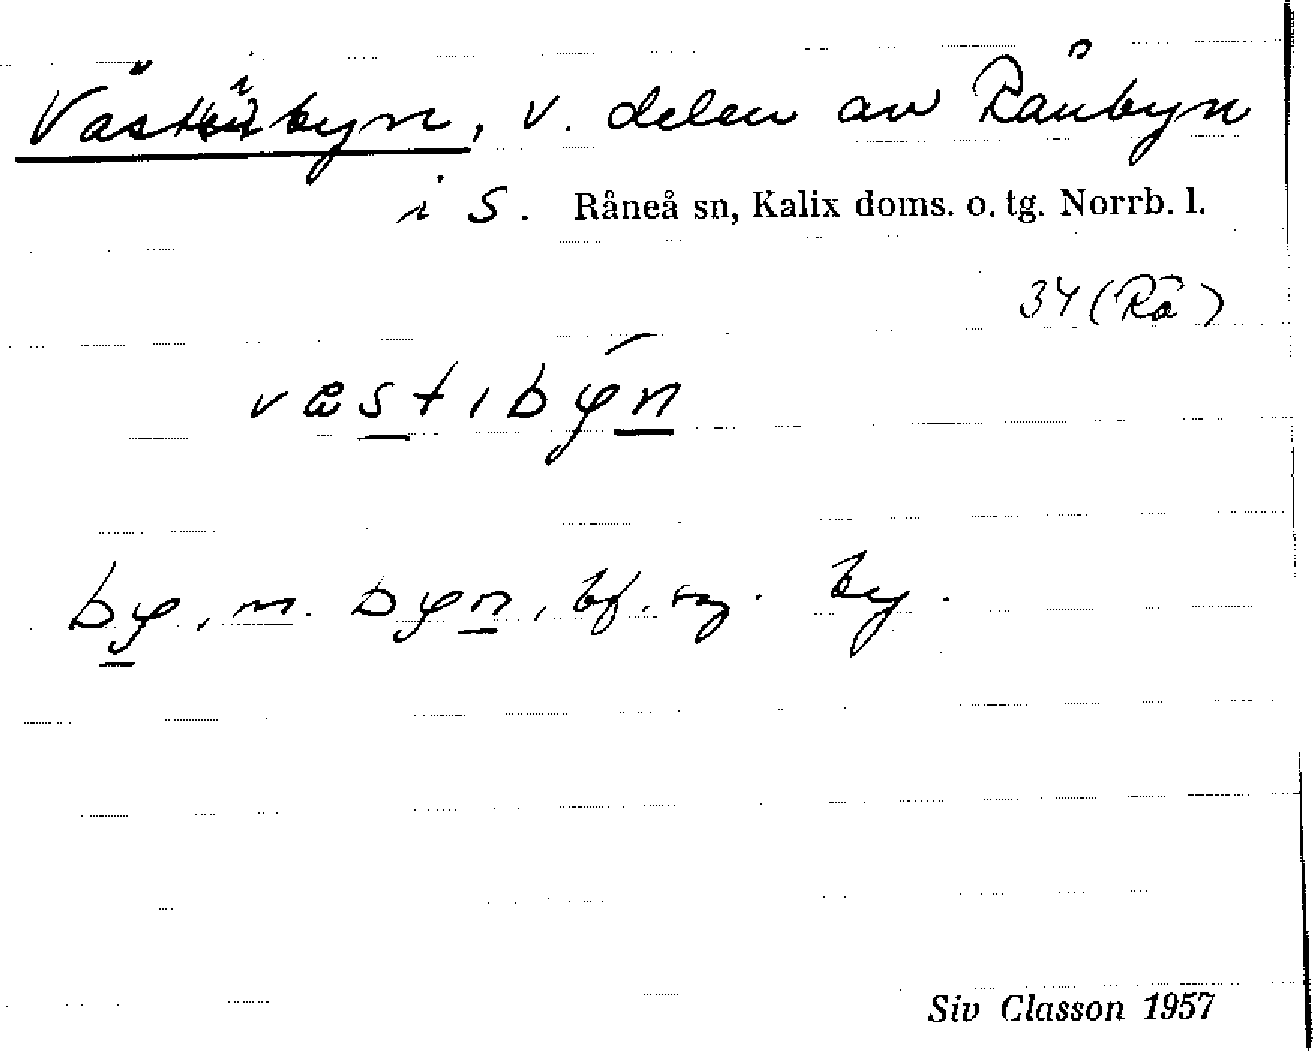 Västibyn, v. delen av Rånbyn
i S. Råneå sn, Kalix doms. o. tg. Norrb. l.
34 (Rå)
væstıbyn
by, m. byn, bf. sg. by.
Siv Classon 1957